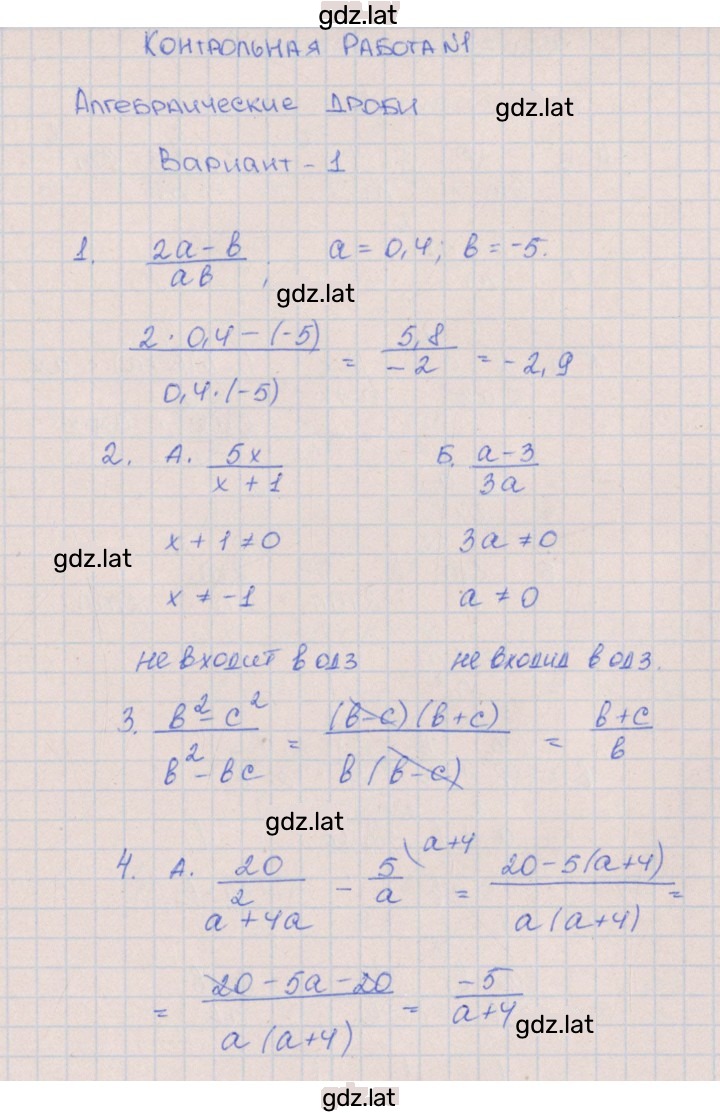 gdz.lat
Контрольная работа №1
Алгебраические дроби
gdz.lat
Вариант - 1
1. (2a - b)/(ab); a = 0,4; b = -5.
gdz.lat
(2 · 0,4 - (-5))/(0,4 · (-5)) = 5,8/(-2) = -2,9
2. А. 5x/(x + 1) Б. (a - 3)/(3a)
x + 1 ≠ 0 3a ≠ 0
gdz.lat
x ≠ -1 a ≠ 0
не входит в одз не входид в одз.
3. (b² - c²)/(b² - bc) = ((b - c)(b + c))/(b(b - c)) = (b + c)/b
gdz.lat
4. А. 20/(a² + 4a) - 5/a \a+4 = (20 - 5(a + 4))/(a(a + 4)) =
= (20 - 5a - 20)/(a(a + 4)) = -5/(a + 4)
gdz.lat
gdz.lat